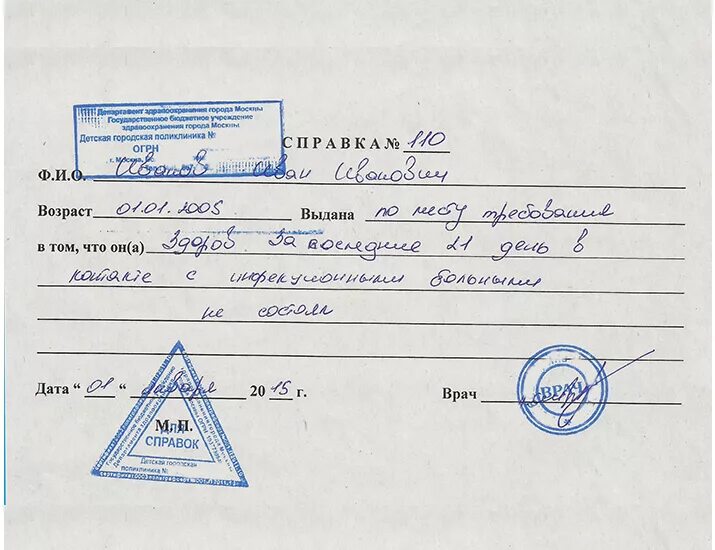 Департамент здравоохранения города Москвы
Государственное бюджетное учреждение
здравоохранения города Москвы
Детская городская поликлиника №
ОГРН
г. Москва
СПРАВКА № 110
Ф.И.О. Иванов Иван Иванович
Возраст 01.01.2005 Выдана по месту требования
в том, что он(а) Здоров. За последние 21 день в
контакте с инфекционными больными
не состоял
Дата “ 01 “ января 20 15 г.
Врач
ВРАЧ
М.П.
ДЛЯ
СПРАВОК
Детская городская
поликлиника №